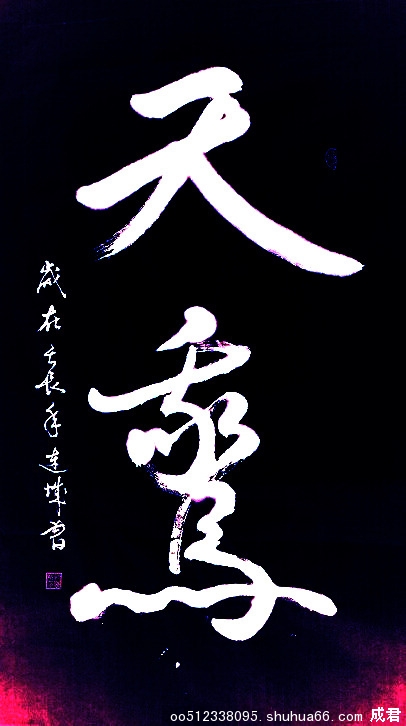 天鵞
歲在壬辰年連城書
oo512338095.shuhua66.com 成君